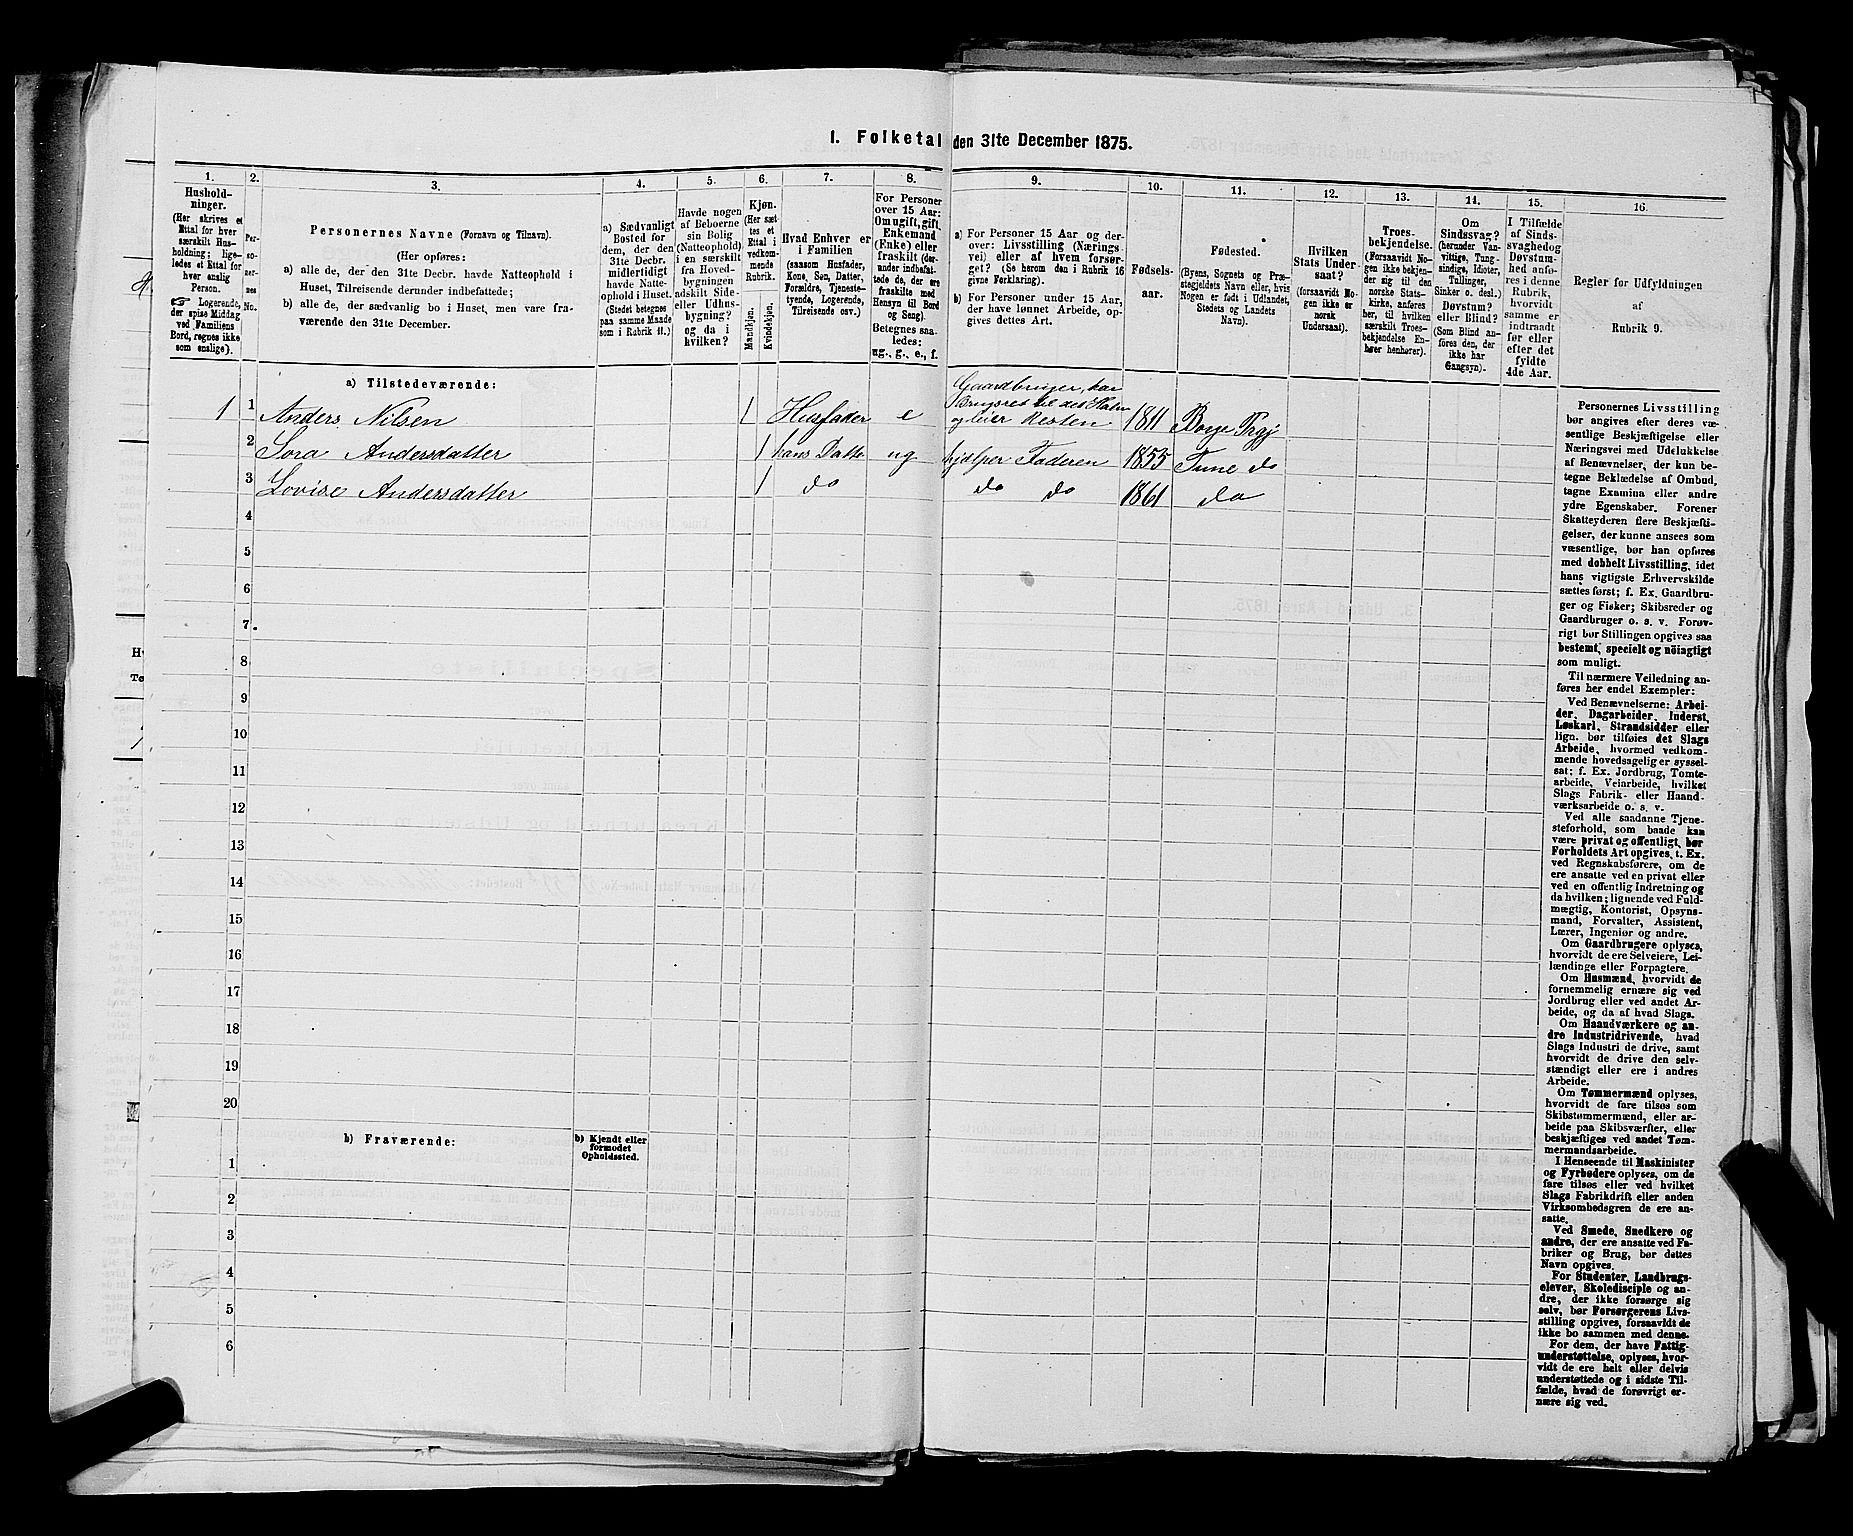 1. Folketal den 31te December 1875.
1.
2.
3.
4.
5.
6.
7.
8.
9.
10.
11.
12.
13.
14.
15.
16.
Hushold-
ninger.
(Her skrives et
Ettal for hver
særskilt Hus-
holdning; lige-
ledes et Ettal for
hver enslig
Person.
☞ Logerende,
der spise Middag
ved Familiens
Bord, regnes ikke
som enslige).
Per-
so-
ner-
nes
No.
Personernes Navne (Fornavn og Tilnavn).
(Her opføres:
a) alle de, der den 31te Decbr. havde Natteophold i
Huset, Tilreisende derunder indbefattede;
b) alle de, der sædvanlig bo i Huset, men vare fra-
værende den 31te December.
a) Sædvanligt
Bosted for
dem, der den
31te Decbr.
midlertidigt
havde Natte-
ophold i Huset.
(Stedet betegnes
paa samme Maade
som i Rubrik 11.)
Havde nogen
af Beboerne
sin Bolig
(Natteophold)
i en særskilt
fra Hoved-
bygningen
adskilt Side-
eller Udhus-
bygning?
og da i
hvilken?
Kjøn.
(Her sæt-
tes et
Ettal i
vedkom-
mende
Rubrik.
Mandkjøn.
Kvindekjøn.
Hvad Enhver er
i Familien
(saasom Husfader,
Kone, Søn, Datter,
Forældre, Tjeneste-
tyende, Logerende,
Tilreisende osv.)
For Personer
over 15 Aar:
Om ugift, gift,
Enkemand
(Enke) eller
fraskilt (der-
under indbefat-
tede de, der ere
fraskilte med
Hensyn til Bord
og Seng).
Betegnes saa-
ledes:
ug., g., e., f.
a) For Personer 15 Aar og der-
over: Livsstilling (Nærings-
vei) eller af hvem forsør-
get? (Se herom den i Rubrik 16
givne Forklaring).
b) For Personer under 15 Aar,
der have lønnet Arbeide, op-
gives dettes Art.
Fødsels-
aar.
Fødested.
(Byens, Sognets og Præ-
stegjeldets Navn eller, hvis
Nogen er født i Udlandet,
Stedets og Landets
Navn).
Hvilken
Stats Under
saat?
(forsaavidt No-
gen ikke er
norsk
Undersaat).
Troes-
bekjendelse.
(Forsaavidt No-
gen ikke bekjen-
der sig til den
norske Stats-
kirke, anføres
her, til hvilken
særskilt Troes-
bekjendelse En-
hver henhører).
Om
Sindssvag?
(herunder Van-
vittige, Tung-
sindige, Idioter,
Tullinger,
Sinker o. desl.)
Døvstum?
eller Blind?
(Som Blind an-
føres den, der
ikke har
Gangsyn).
I Tilfælde
af Sinds-
svaghed og
Døvstum-
hed anfø-
res i denne
Rubrik,
hvorvidt
samme er
indtraadt
før eller
efter det
fyldte
4de Aar.
Regler for Udfyldningen
af
Rubrik 9.
a) Tilstedeværende:
Gaardbruger, har
Brugsret til det Halve
1 1 Anders Nilsen 1 Husfader e og leier Resten 1811 Borge Prgj
2 Sora Andersdatter 1 hans Datter ug hjælper Faderen 1855 Tune do
3 Lovise Andersdatter 1 do do do 1861 do
4
5
6
7
8
9
10
11
12
13
14
15
16
17
18
19
20
b) Fraværende:
b) Kjendt eller
formodet
Opholdssted.
1
2
3
4
5
6
Personernes Livsstilling
bør angives efter deres væ-
sentlige Beskjæftigelse eller
Næringsvei med Udelukkelse
af Benævnelser, der kun be-
tegne Beklædelse af Ombud,
tagne Examina eller andre
ydre Egenskaber. Forener
Skatteyderen flere Beskjæfti-
gelser, der kunne ansees som
væsentlige, bør han opføres
med dobbelt Livsstilling, idet
hans vigtigste Erhvervskilde
sættes først; f. Ex. Gaardbru-
ger og Fisker; Skibsreder og
Gaardbruger o. s. v. Forøv-
rigt bør Stillingen opgives saa
bestemt, specielt og nöiagtigt
som muligt.
Til nærmere Veiledning an-
føres her endel Exempler:
Ved Benævnelserne: Arbei-
der, Dagarbeider, Inderst,
Løskarl, Strandsidder eller
lign. bør tilføies det Slags
Arbeide, hvormed vedkom-
mende hovedsagelig er syssel-
sat; f. Ex. Jordbrug, Tomte-
arbeide, Veiarbeide, hvilket
Slags Fabrik- eller Haand-
værksarbeide o. s. v.
Ved alle saadanne Tjene-
steforhold, som baade kan
være privat og offentligt, bør
Forholdets Art opgives, t. Ex.
ved Regnskabsførere, om de
ere ansatte ved en privat eller
ved en offentlig Indretning og
da hvilken; lignende ved Fuld-
mægtig, Kontorist, Opsyns-
mand, Forvalter, Assistent,
Lærer, Ingeniør og andre.
Om Gaardbrugere oplyses,
hvorvidt de ere Selveiere, Lei-
lændinge eller Forpagtere.
Om Husmænd, hvorvidt de
fornemmelig ernære sig ved
Jordbrug eller ved andet Ar-
beide, og da af hvad Slags.
Om Haandværkere og an-
dre Industridrivende, hvad
Slags Industri de drive, samt
hvorvidt de drive den selv-
stændigt eller ere i andres
Arbeide.
Om Tømmermænd oplyses,
hvorvidt de fare tilsøs som
Skibstømmermænd, eller ar-
beide paa Skibsværfter, eller
beskjæftiges ved andet Tøm-
mermandsarbeide.
I Henseende til Maskinister
og Fyrbødere oplyses, om de
fare tilsøs eller ved hvilket
Slags Fabrikdrift eller anden
Virksomhedsgren de ere an-
satte.
Ved Smede, Snedkere og
andre, der ere ansatte ved Fa-
briker og Brug, bør dettes
Navn opgives.
For Studenter, Landbrugs-
elever, Skoledisciple og an-
dre, der ikke forsørge sig
selv, bør Forsørgerens Livs-
stilling opgives, forsaavidt de
ikke bo sammen med denne.
For dem, der have Fattig-
understøttelse, oplyses, hvor-
vidt de ere helt eller delvis
understøttede og i sidste Til-
fælde, hvad de forøvrigt er-
nære sig ved.